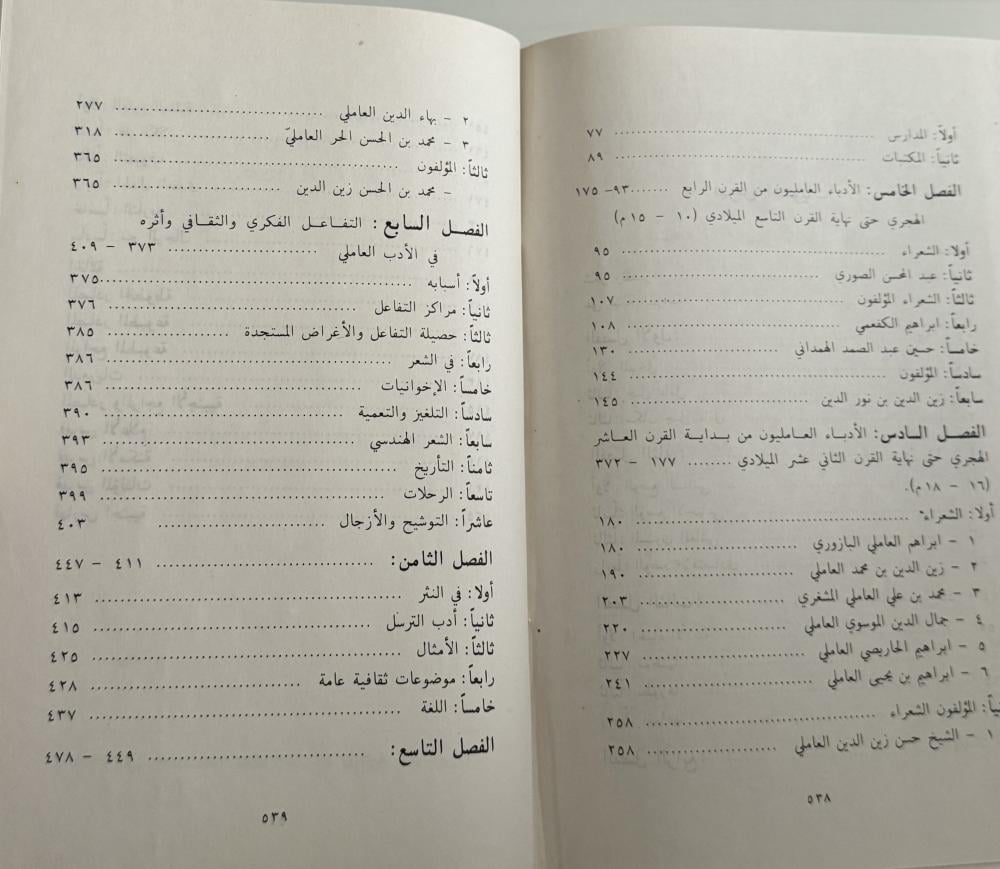 أولاً: المدارس ........ ٧٧
ثانياً: المكتبات ........ ٨٩
الفصل الخامس: الأدباء العامليون من القرن الرابع ........ ٩٣- ١٧٥
الهجري حتى نهاية القرن التاسع الميلادي (١٠ - ١٥ م)
أولا: الشعراء ........ ٩٥
ثانياً: عبد المحسن الصوري ........ ٩٥
ثالثاً: الشعراء المؤلفون ........ ١٠٧
رابعاً: ابراهيم الكفعمي ........ ١٠٨
خامساً: حسين عبد الصمد الهمداني ........ ١٣٠
سادساً: المؤلفون ........ ١٤٤
سابعاً: زين الدين بن نور الدين ........ ١٤٥
الفصل السادس: الأدباء العامليون من بداية القرن العاشر
الهجري حتى نهاية القرن الثاني عشر الميلادي ........ ١٧٧ - ٣٧٢
(١٦ - ١٨ م).
أولا: الشعراء ........ ١٨٠
١ - ابراهم العاملي البازوري ........ ١٨٠
٢ - زين الدين بن محمد العاملي ........ ١٩٠
٣ - محمد بن علي العاملي المشغري ........ ٢٠٣
٤ - جمال الدين الموسوي العاملي ........ ٢٢٠
٥ - ابراهيم الحاريصي العاملي ........ ٢٢٧
٦ - ابراهيم بن يحيى العاملي ........ ٢٤١
نياً: المؤلفون الشعراء ........ ٢٥٨
١ - الشيخ حسن زين الدين العاملي ........ ٢٥٨
٥٣٨
٢ - بهاء الدين العاملي ........ ٢٧٧
٣ - محمد بن الحسن الحر العامليّ ........ ٣١٨
ثالثاً: المؤلفون ........ ٣٦٥
- محمد بن الحسن زين الدين ........ ٣٦٥
الفصل السابع: التفاعل الفكري والثقافي وأثره
في الأدب العاملي ........ ٣٧٣ - ٤٠٩
أولاً: أسبابه ........ ٣٧٥
ثانياً: مراكز التفاعل ........ ٣٧٦
ثالثاً: حصيلة التفاعل والأغراض المستجدة ........ ٣٨٥
رابعاً: في الشعر ........ ٣٨٦
خامساً: الإخوانيات ........ ٣٨٦
سادساً: التلغيز والتعمية ........ ٣٩٠
سابعاً: الشعر الهندسي ........ ٣٩٣
ثامناً: التأريخ ........ ٣٩٥
تاسعاً: الرحلات ........ ٣٩٩
عاشراً: التوشيح والأزجال ........ ٤٠٣
الفصل الثامن: ........ ٤١١ - ٤٤٧
أولا: في النثر ........ ٤١٣
ثانياً: أدب الترسل ........ ٤١٥
ثالثاً: الأمثال ........ ٤٢٥
رابعاً: موضوعات ثقافية عامة ........ ٤٢٨
خامساً: اللغة ........ ٤٣٧
الفصل التاسع: ........ ٤٤٩ - ٤٧٨
٥٣٩